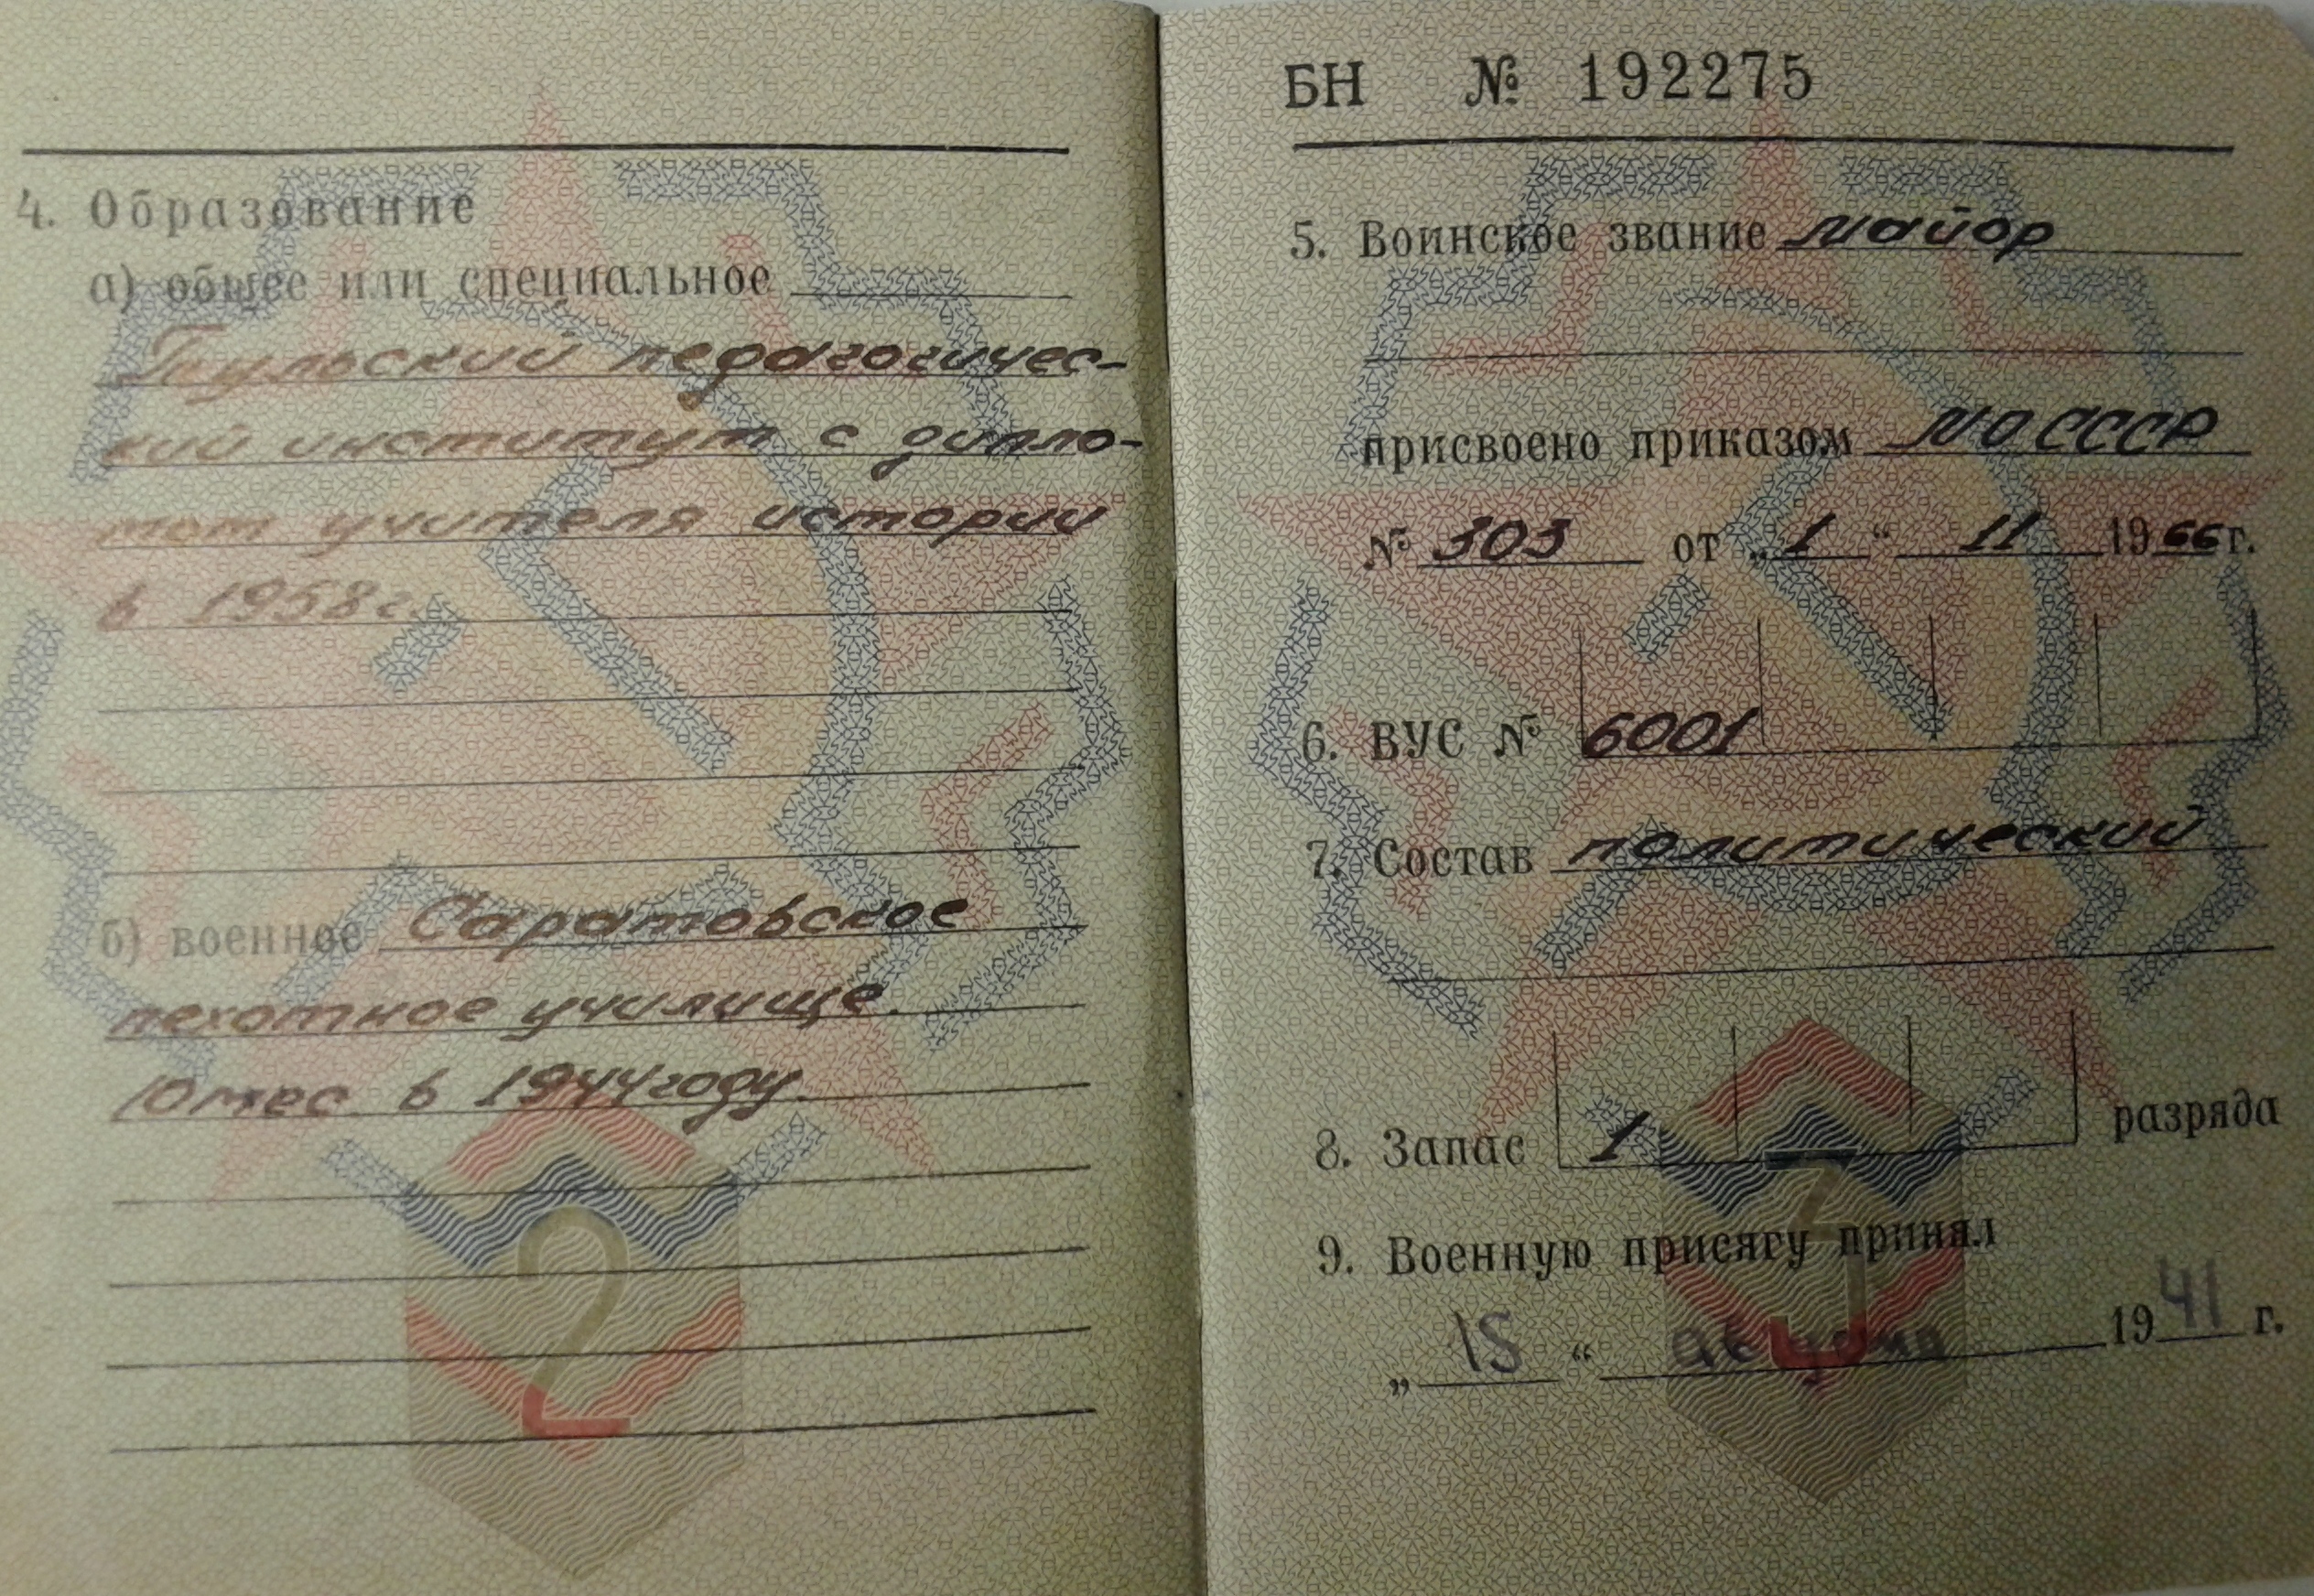 4. Образование
а) общее или специальное
Тульский педагогичес-
кий институт с дипло-
мом учителя истории
в 1958г.
б) военное Саратовское
пехотное училище.
10 мес. в 1944 году.
2
БН № 192275
5. Воинское звание майор
присвоено приказом МО СССР
№ 303 от „1“ 11 1966 г.
6. ВУС № 6001
7. Состав политический
8. Запас 1 разряда
9. Военную присягу принял
„15“ августа 1941 г.
3